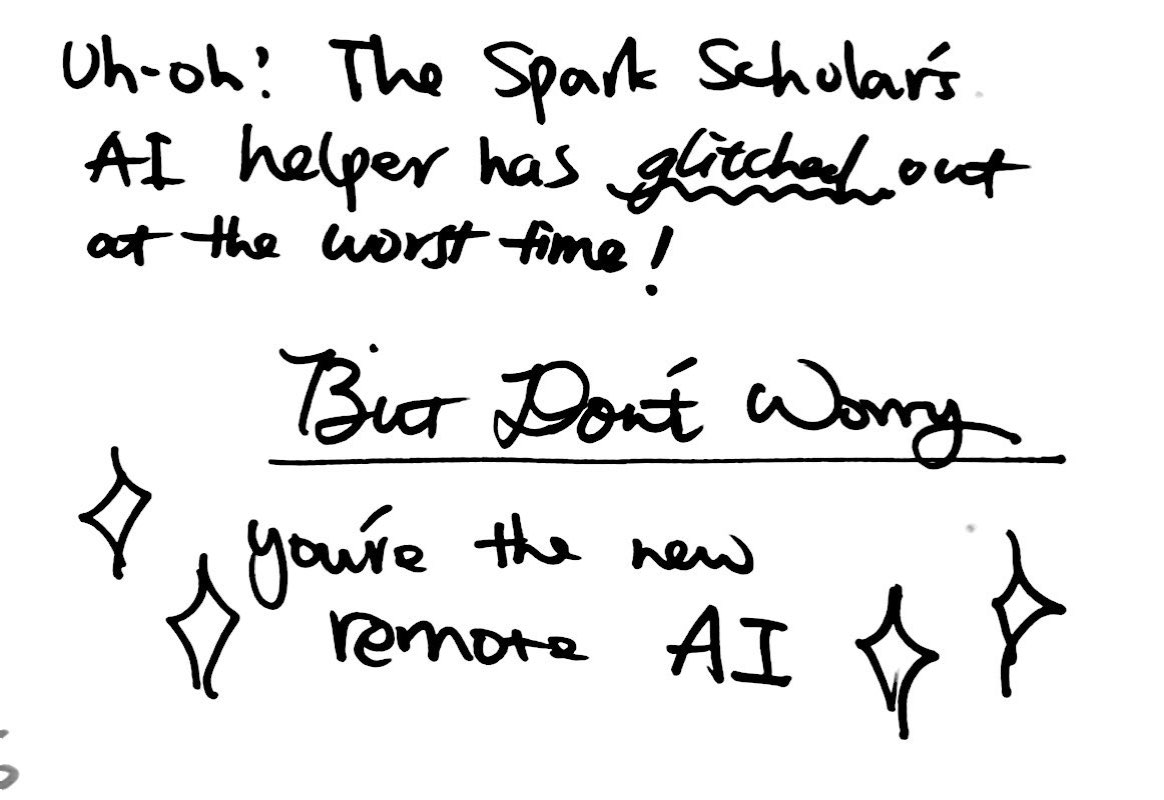 Uh-oh! The Spark Scholar's
AI helper has glitched out
at the worst time!
But Don't Worry
you're the new
remote AI